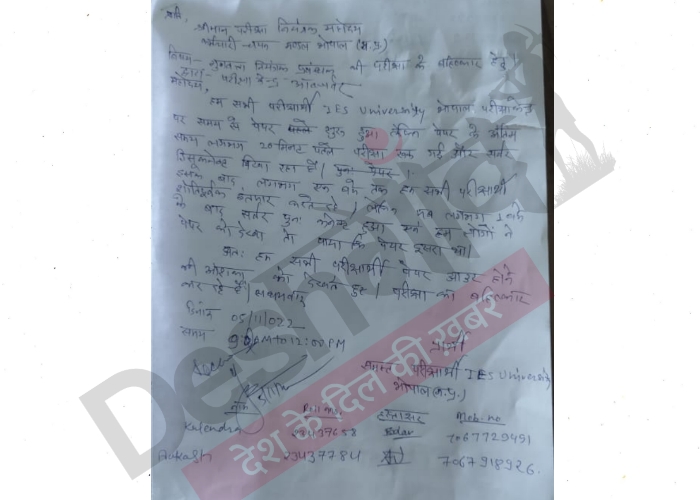 प्रति,
श्रीमान परीक्षा नियंत्रक महोदय
कर्मचारी चयन मण्डल भोपाल (म.प्र)
विषय- गुणवत्ता नियंत्रक की परीक्षा के बहिष्कार हेतु।
महोदय,
हम सभी परीक्षार्थी IES University भोपाल परीक्षा केन्द्र
पर समय से पेपर शुरू हुआ लेकिन पेपर के अंतिम
समय लगभग 20 मिनट पहले परीक्षा रुक गई और सर्वर
डिसकनेक्ट दिखा रहा है।
इसके बाद लगभग एक घंटे तक हम सभी परीक्षार्थी
शांतिपूर्वक इंतजार करते रहे। लेकिन जब लगभग 1 घंटे
के बाद सर्वर पुनः कनेक्ट हुआ तब हम लोगों ने
पेपर को देखा तो पाया कि पेपर दूसरा था।
अतः हम सभी परीक्षार्थी पेपर आउट होने
की आशंका को देखते हुए परीक्षा का बहिष्कार
कर रहे हैं। धन्यवाद
दिनांक 05/11/022
समय 9:00AM to 12:00PM
प्रार्थी
समस्त परीक्षार्थी IES University
भोपाल (म.प्र.)
नाम Roll no. हस्ताक्षर Mob. no
Kalendra 7067729491
Aakash 3437784 7067918926.
Deshgaon
देश के दिल की ख़बर